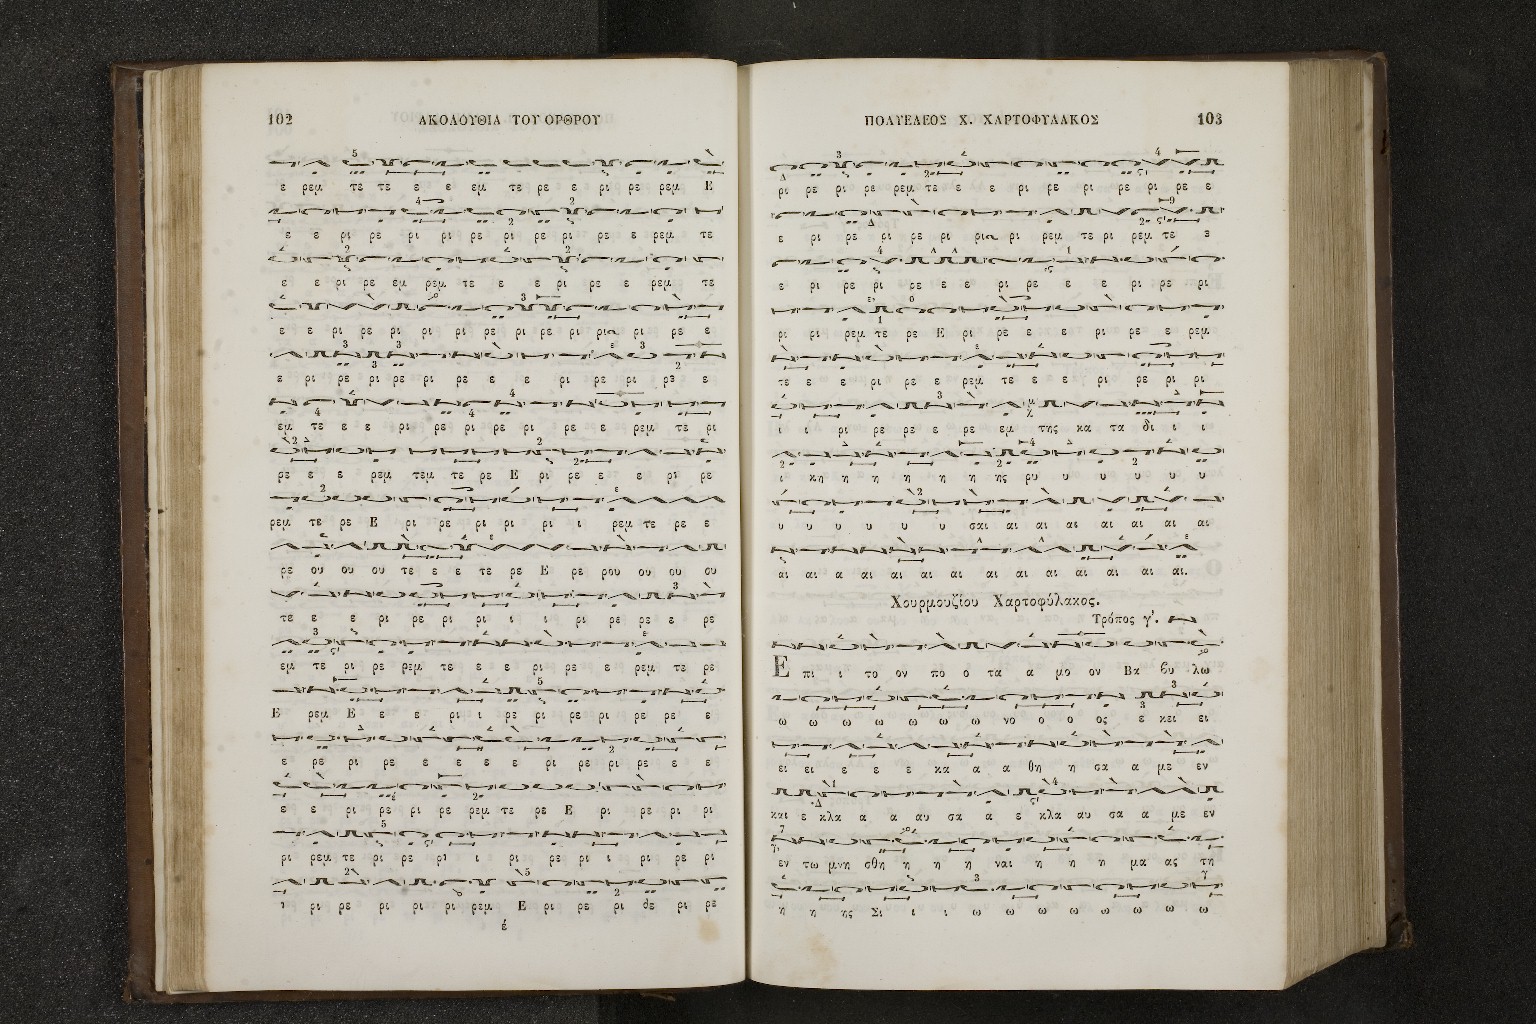 102
ΑΚΟΛΟΥΘΙΑ ΤΟΥ ΟΡΘΡΟΥ
ε ρεμ τε τε ε ε εμ τε ρε ε ρι ρε ρεμ Ε
ε ε ρι ρε ρι ρι ρε ρι ρε ρι ρε ε ρεμ τε
ε ε ρι ρε εμ ρεμ τε ε ε ρι ρε ε ρεμ τε
ε ε ρι ρε ρι ρι ρι ρε ρι ρε ρι ρι ρι ρε ε
ε ρι ρε ρι ρε ρι ρε ε ε ρι ρε ρι ρε ε
εμ τε ε ε ρι ρε ρι ρε ρι ρε ε ρεμ τε ρι
ρε ε ε ρεμ τεμ τε ρε Ε ρι ρε ε ε ρι ρε
ρεμ τε ρε Ε ρι ρε ρι ρι ρι ι ρεμ τε ρε ε
ρε ου ου ου τε ε ε τε ρε Ε ρε ρου ου ου ου
τε ε ε ρι ρε ρι ρι ι ι ρι ρε ρε ε ρε
εμ τε ρι ρε ρεμ τε ε ε ρι ρε ε ρεμ τε ρε
Ε ρεμ Ε ε ε ρι ι ρε ρι ρε ρι ρε ρε ε
ε ρε ρι ρε ε ε ε ε ρι ρε ρι ρε ε ε
ε ε ρι ρε ρι ρε ρεμ τε ρε Ε ρι ρε ρι ρι
ρι ρεμ τε ρι ρε ρι ι ρι ρε ρι ι ρι ρε ρι
ι ρι ρε ρι ρι ρι ρεμ Ε ρι ρε ρι θε ρι ρε
ΠΟΛΥΕΛΕΟΣ Χ. ΧΑΡΤΟΦΥΛΑΚΟΣ
103
ρι ρε ρι ρε ρεμ τε ε ε ρι ρε ρι ρε ρι ρε ε
ε ρι ρε ρι ρε ρι ρι ρι ρεμ τε ρι ρεμ τε ε
ε ρι ρε ρι ρε ε ε ρι ρε ε ε ρι ρε ρι
ρι ρι ρεμ τε ρε Ε ρι ρε ε ε ρι ρε ε ρεμ
τε ε ε ρι ρε ε ρεμ τε ε ε ρι ρε ρι ρι
ι ι ρι ρε ρε ε ρε εμ της κα τα δι ι ι
ι κη η η η η η ης ρυ υ υ υ υ υ
υ υ υ υ υ υ σαι αι αι αι αι αι αι αι
αι αι α αι αι αι αι αι αι αι αι αι αι αι.
Χουρμουζίου Χαρτοφύλακος.
Τρόπος γ΄.
Ε πι ι το ον πο ο τα α μο ον Βα βυ λω
ω ω ω ω ω ω ω νο ο ο ος ε κει ει
ει ει ε ε ε κα α α θη η σα α με εν
και ε κλα α α αυ σα α ε κλα αυ σα α με εν
εν τω μνη σθη η η η ναι η η η μα ας τη
η η ης Σι ι ι ω ω ω ω ω ω ω ω